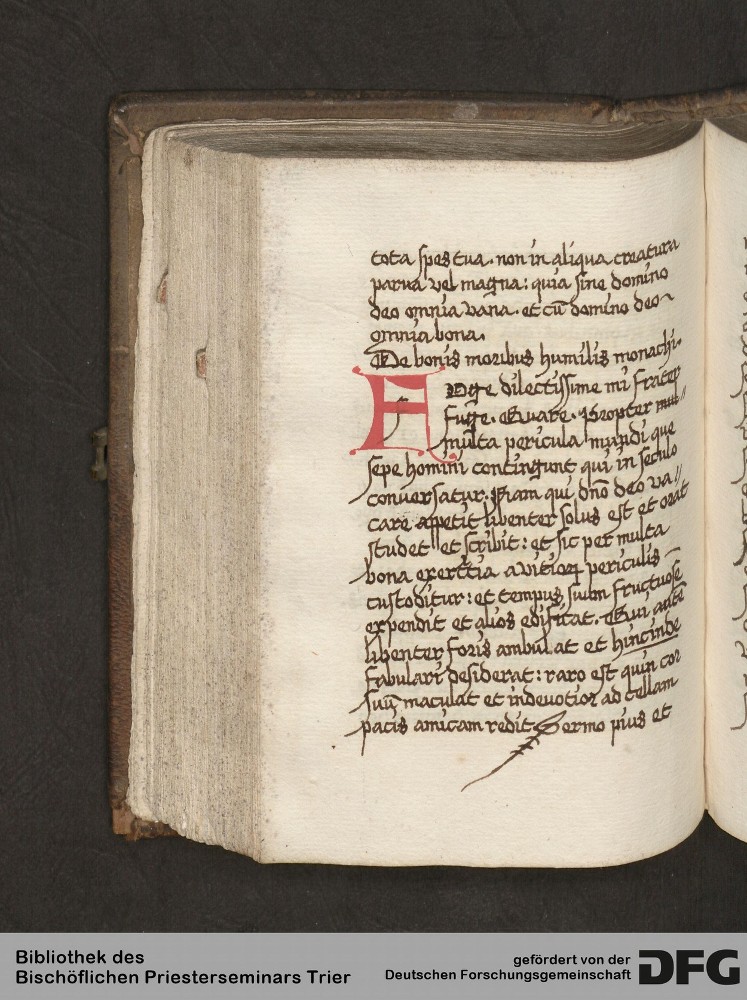 tota spes tua. non in aliqua creatura
parva vel magna: quia sine domino
deo omnia vana. et cū domino deo
omnia bona.
De bonis moribus humilis monachi.
Age dilectissime mi frater
fuge. Quare. Propter mul//
multa pericula mundi que
sepe homini contingunt qui in seculo
conversatur. Nam qui dño deo va//
care appetit libenter solus est et orat
studet et scribit: et sic per multa
bona exercitia a vitioꝝ periculis
custoditur: et tempus suum fructuose
expendit et alios edificat. Qui autē
libenter foris ambulat et hincinde
fabulari desiderat: raro est quin cor
suū maculat et indevotior ad cellam
pacis amicam redit. Sermo pius et
Bibliothek des
Bischöflichen Priesterseminars Trier
gefördert von der
Deutschen Forschungsgemeinschaft
DFG